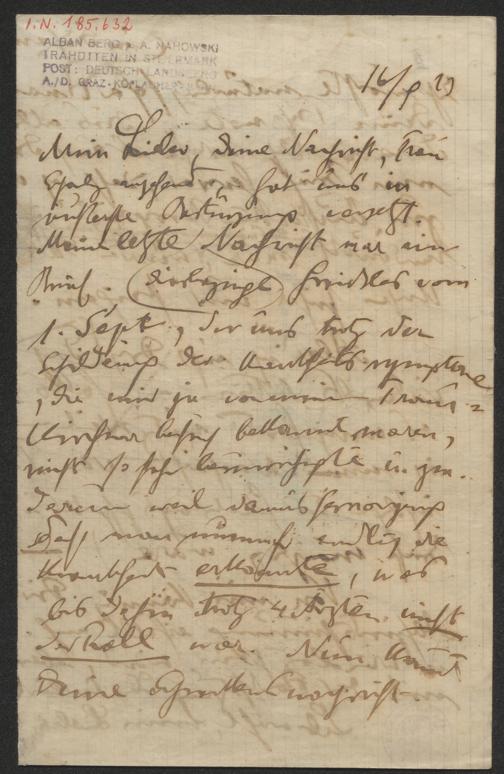 I.N. 185.632
ALBAN BERG b. A. NAHOWSKI
TRAHÜTTEN IN STEIERMARK
POST: DEUTSCH LANDSBERG
A./D. GRAZ-KÖFLACHER
16/9 29
Mein Lieber, Deine Nachricht, Frau
angehend, hat uns in
äußerste Bestürzung versetzt.
Meine letzte Nachricht war ein
Brief. Friedles vom
1. Sept., der uns trotz der
Schilderung der Krankheitssymptome
, die mir ja von meinem Traun-
kirchner Besuch bekannt waren,
nicht so sehr beunruhigte u. zw.
darum weil daraus hervorging
daß man nunmehr endlich die
Krankheit erkannte, was
bis dahin trotz 4 Ärzten nicht
der Fall war. Nun kommt
Deine Schreckensnachricht.